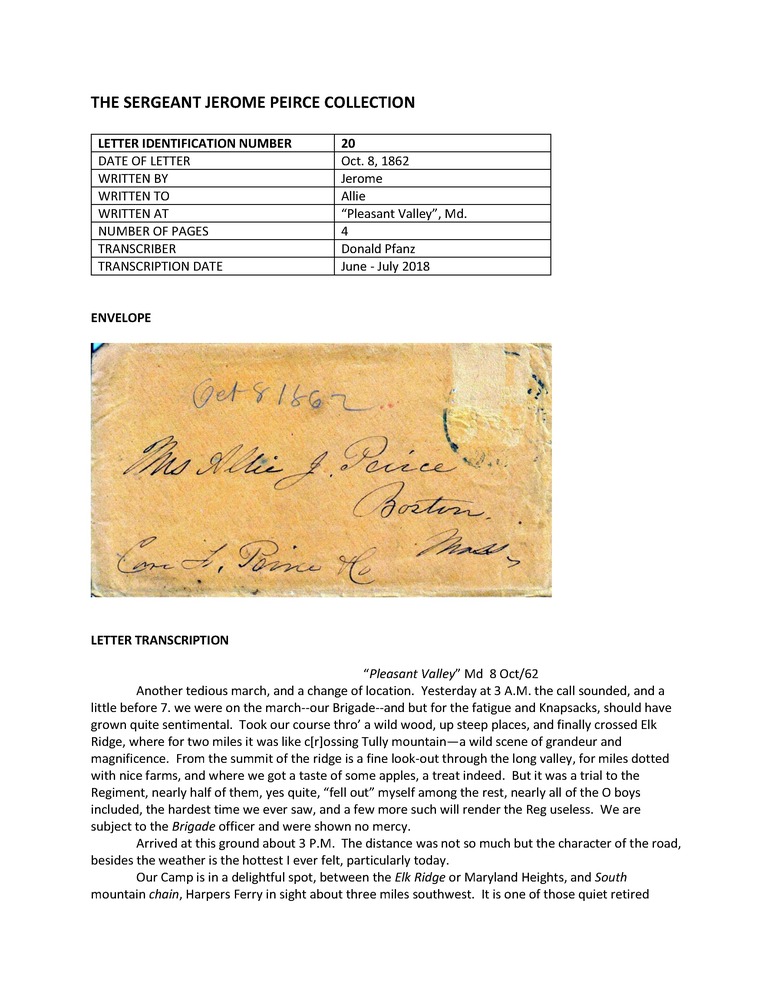 THE SERGEANT JEROME PEIRCE COLLECTION
LETTER IDENTIFICATION NUMBER 20
DATE OF LETTER Oct. 8, 1862
WRITTEN BY Jerome
WRITTEN TO Allie
WRITTEN AT “Pleasant Valley”, Md.
NUMBER OF PAGES 4
TRANSCRIBER Donald Pfanz
TRANSCRIPTION DATE June - July 2018
ENVELOPE
Oct 8 1862
Ms Allie J. Peirce
Boston,
Mass,
Care F. Peirce & Co
LETTER TRANSCRIPTION
“Pleasant Valley” Md 8 Oct/62
Another tedious march, and a change of location. Yesterday at 3 A.M. the call sounded, and a
little before 7. we were on the march--our Brigade--and but for the fatigue and Knapsacks, should have
grown quite sentimental. Took our course thro’ a wild wood, up steep places, and finally crossed Elk
Ridge, where for two miles it was like c[r]ossing Tully mountain—a wild scene of grandeur and
magnificence. From the summit of the ridge is a fine look-out through the long valley, for miles dotted
with nice farms, and where we got a taste of some apples, a treat indeed. But it was a trial to the
Regiment, nearly half of them, yes quite, “fell out” myself among the rest, nearly all of the O boys
included, the hardest time we ever saw, and a few more such will render the Reg useless. We are
subject to the Brigade officer and were shown no mercy.
Arrived at this ground about 3 P.M. The distance was not so much but the character of the road,
besides the weather is the hottest I ever felt, particularly today.
Our Camp is in a delightful spot, between the Elk Ridge or Maryland Heights, and South
mountain chain, Harpers Ferry in sight about three miles southwest. It is one of those quiet retired